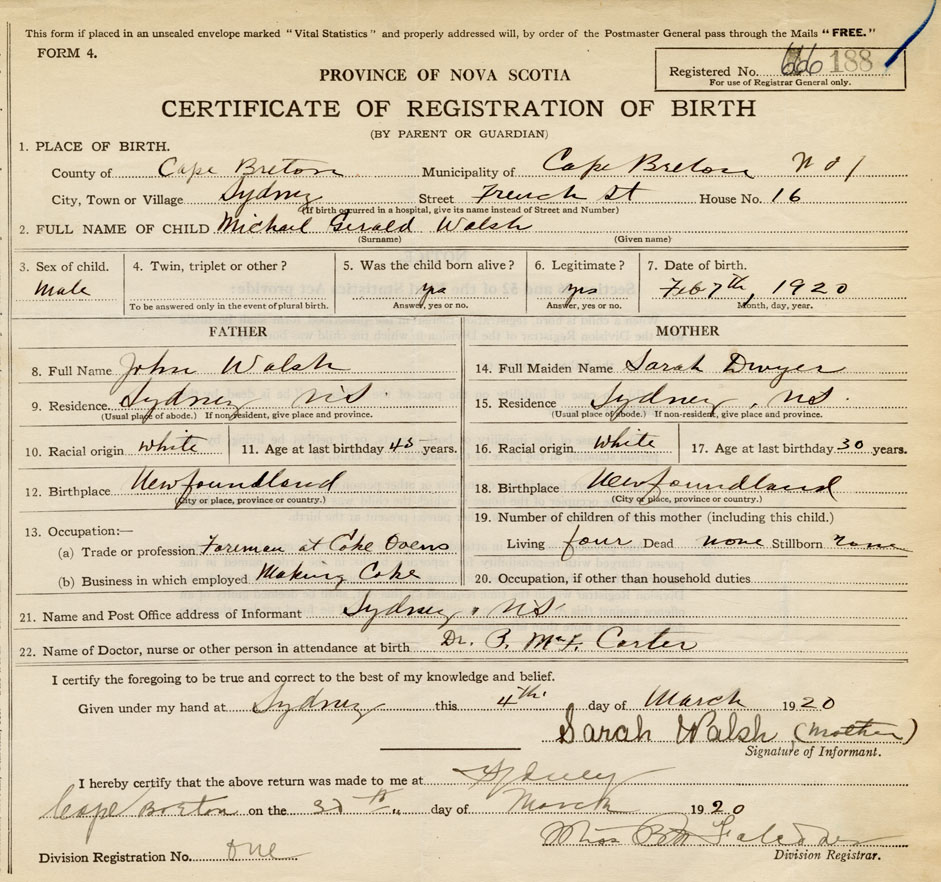 This form if placed in an unsealed envelope marked "Vital Statistics" and properly addressed will, by order of the Postmaster General pass through the Mails "FREE."
FORM 4.
Registered No. 188
For use of Registrar General only.
PROVINCE OF NOVA SCOTIA
CERTIFICATE OF REGISTRATION OF BIRTH
(BY PARENT OR GUARDIAN)
1. PLACE OF BIRTH.
County of Cape Breton Municipality of Cape Breton No 1
City, Town or Village Sydney Street French St House No. 16
(If birth occurred in a hospital, give its name instead of Street and Number)
2. FULL NAME OF CHILD Michael Gerald Walsh
(Surname) (Given name)
3. Sex of child. 4. Twin, triplet or other? 5. Was the child born alive? 6. Legitimate? 7. Date of birth.
Male yes yes Feb 7th, 1920
To be answered only in the event of plural birth. Answer, yes or no. Answer, yes or no. Month, day, year.
FATHER
8. Full Name John Walsh
9. Residence. Sydney NS
(Usual place of abode.) If non-resident, give place and province.
10. Racial origin white 11. Age at last birthday 45 years.
12. Birthplace Newfoundland
(City or place, province or country.)
13. Occupation:—
(a) Trade or profession Foreman at Coke Ovens
(b) Business in which employed Making Coke
MOTHER
14. Full Maiden Name Sarah Dwyer
15. Residence Sydney, NS.
(Usual place of abode.) If non-resident, give place and province.
16. Racial origin white 17. Age at last birthday 30 years.
18. Birthplace Newfoundland
(City or place, province or country.)
19. Number of children of this mother (including this child.)
Living four Dead none Stillborn none
20. Occupation, if other than household duties
21. Name and Post Office address of Informant Sydney, NS
22. Name of Doctor, nurse or other person in attendance at birth Dr. Carter
I certify the foregoing to be true and correct to the best of my knowledge and belief.
Given under my hand at Sydney this 4th. day of March 1920
Sarah Walsh (Mother)
Signature of Informant.
I hereby certify that the above return was made to me at Sydney
Cape on the day of March 1920
Miss
Division Registration No. One Division Registrar.